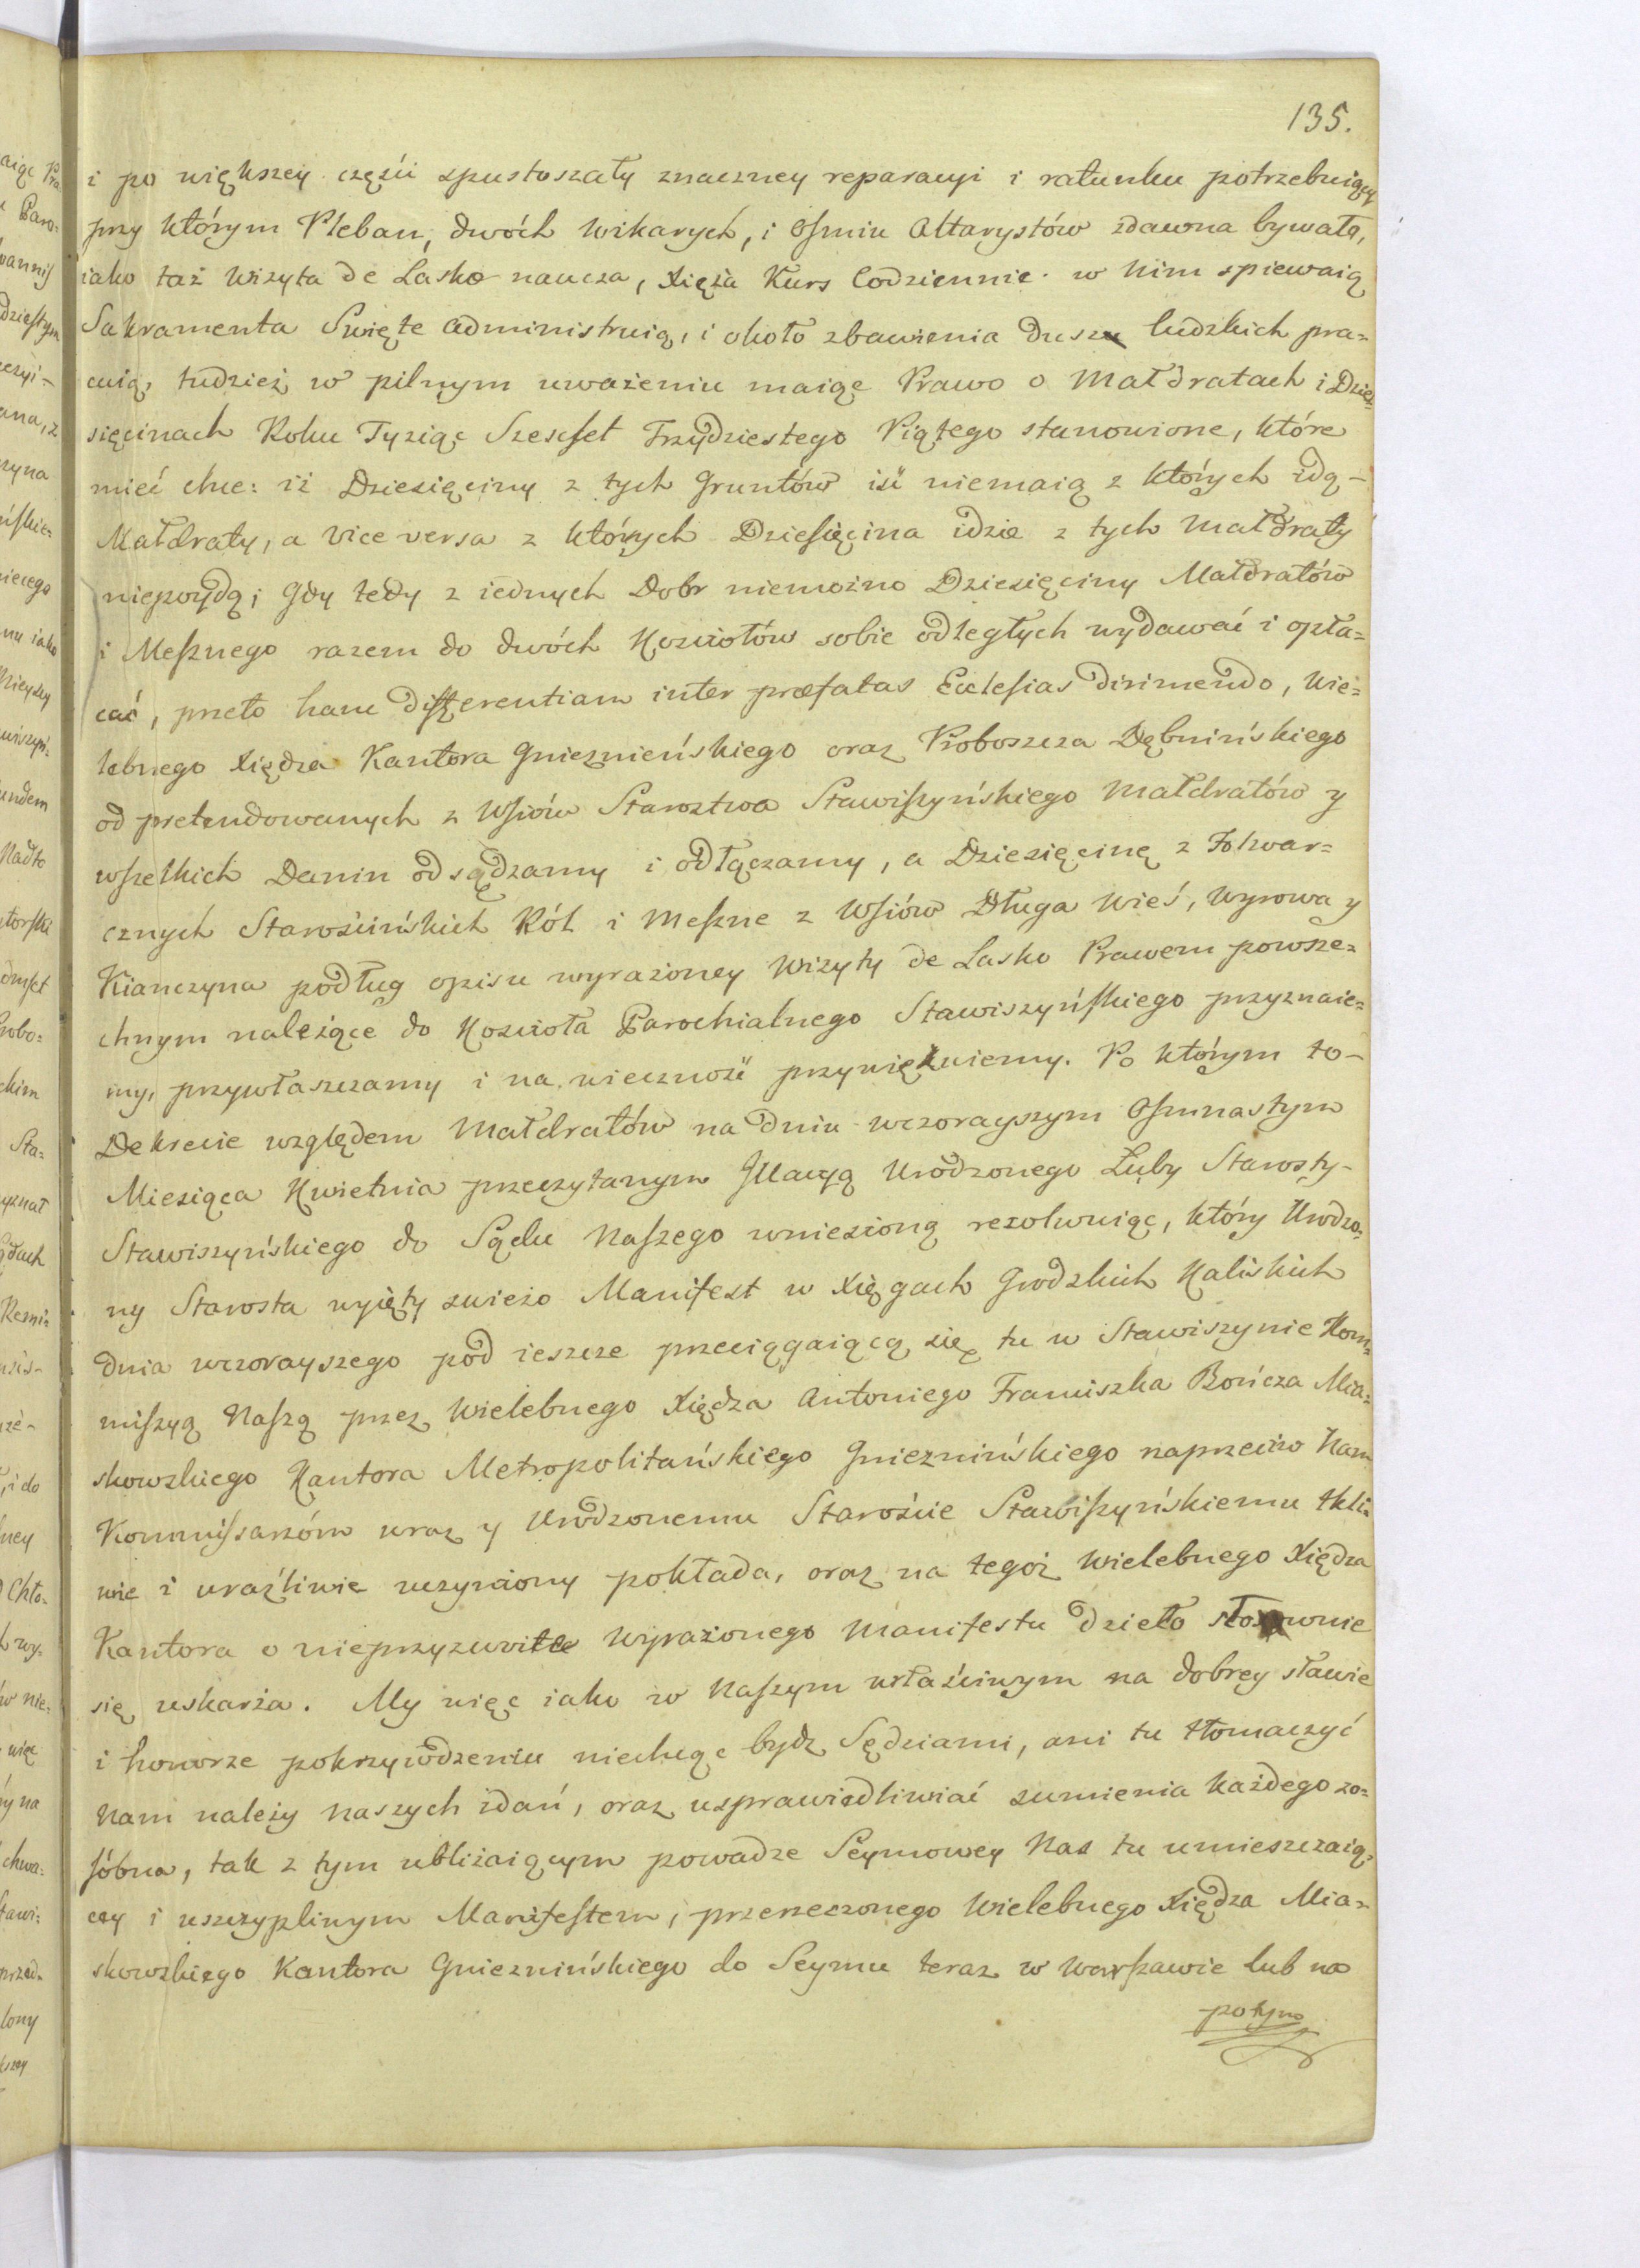 135.
i po większey części spustoszały znaczney reparacyi i ratunku potrzebuiący
przy którym Pleban, dwóch Wikarych, i Osmiu Altarystów zdawna bywało,
iako taż Wizyta de Lasko naucza, Xięża Kurs Codziennie w Nim spiewaią
Sakramenta Swięte administruią, i około zbawienia dusz ludzkich pra=
cuią, tudzież w pilnym uważeniu maiąc Prawo o Małdratach i Dzie=
sięcinach Roku Tysiąc Szescset Trzydziestego Piątego stanowione, które
mieć chce: iż Dziesięciny z tych Gruntów iść niemaią z których idą –
Małdraty, a vice versa z których Dziesięcina idzie z tych Małdraty
niepoydą; Gdy tedy z iednych Dobr niemożno Dziesięciny Małdratów
i Mesznego razem do dwóch Kościołów sobie odległych wydawać i opła=
cać, przeto hanc differentiam inter præfatas Ecclesias dirimendo, Wie=
lebnego Xiędza Kantora Gnieznieńskiego oraz Proboszcza Dębnińskiego
od pretendowanych z Wsiów Starostwa Stawiszyńskiego Małdratów y
wszelkich Danin odsądzamy i odłączamy, a Dziesięcinę z Folwar=
cznych Starościńskich Ról i Meszne z Wsiów Długa Wieś, Wyrowa y
Kianczyna podług opisu wyrażoney Wizyty de Lasko Prawem powsze=
chnym należące do Kościoła Parochialnego Stawiszyńskiego przyznaie=
my, przywłaszczamy i na wieczność przywięzuiemy. Po którym to –
Dekrecie względem Małdratów na dniu wczorayszym Osmnastym
Miesiąca Kwietnia przeczytanym Illacyą Urodzonego Łuby Starosty –
Stawiszyńskiego do Sądu Naszego wniesioną rezolwuiąc, który Urodzo=
ny Starosta wyięty swieżo Manifest w Xięgach Grodzkich Kaliskich
dnia wczorayszego pod ieszcze przeciągaiącą się tu w Stawiszynie Kom=
miszyą Naszą przez Wielebnego Xiędza Antoniego Franciszka Bończa Mia=
skowskiego Kantora Metropolitańskiego Gnieznińskiego naprzeciw Nam
Kommissarzóm wraz y Urodzonemu Staroście Stawiszyńskiemu tkli=
wie i uraźliwie uczyniony pokłada, oraz na tegoż Wielebnego Xiędza
Kantora o nieprzyzwoite wyrażonego Manifestu dzieło stosownie
się uskarża. My więc iako w Naszym właściwym na dobrey sławie
i honorze pokrzywdzeniu niechcąc bydz Sędziami, ani tu tłomaczyć
Nam należy naszych zdań, oraz usprawiedliwiać sumienia każdego zo=
sóbna, tak z tym ubliżaiącym powadze Seymowey Nas tu umieszczaią=
cey i uszczypliwym Manifestem, przerzeczonego Wielebnego Xiędza Mia=
skowskiego Kantora Gnieznińskiego do Seymu teraz w Warszawie lub na
potym